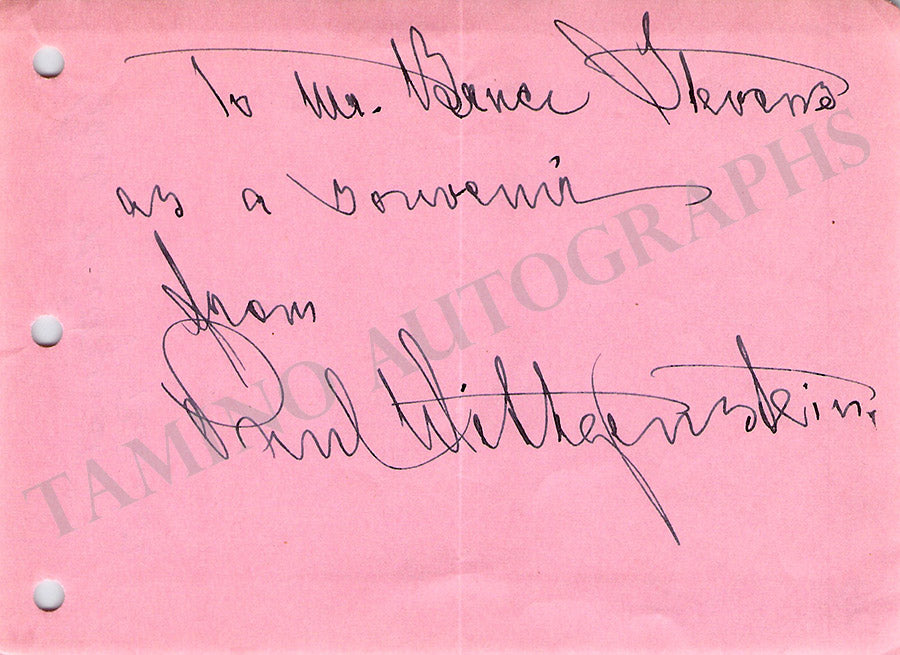 To Mr. Bence Stevens
as a souvenir
from
Paul Wittgenstein.
TAMINO AUTOGRAPHS